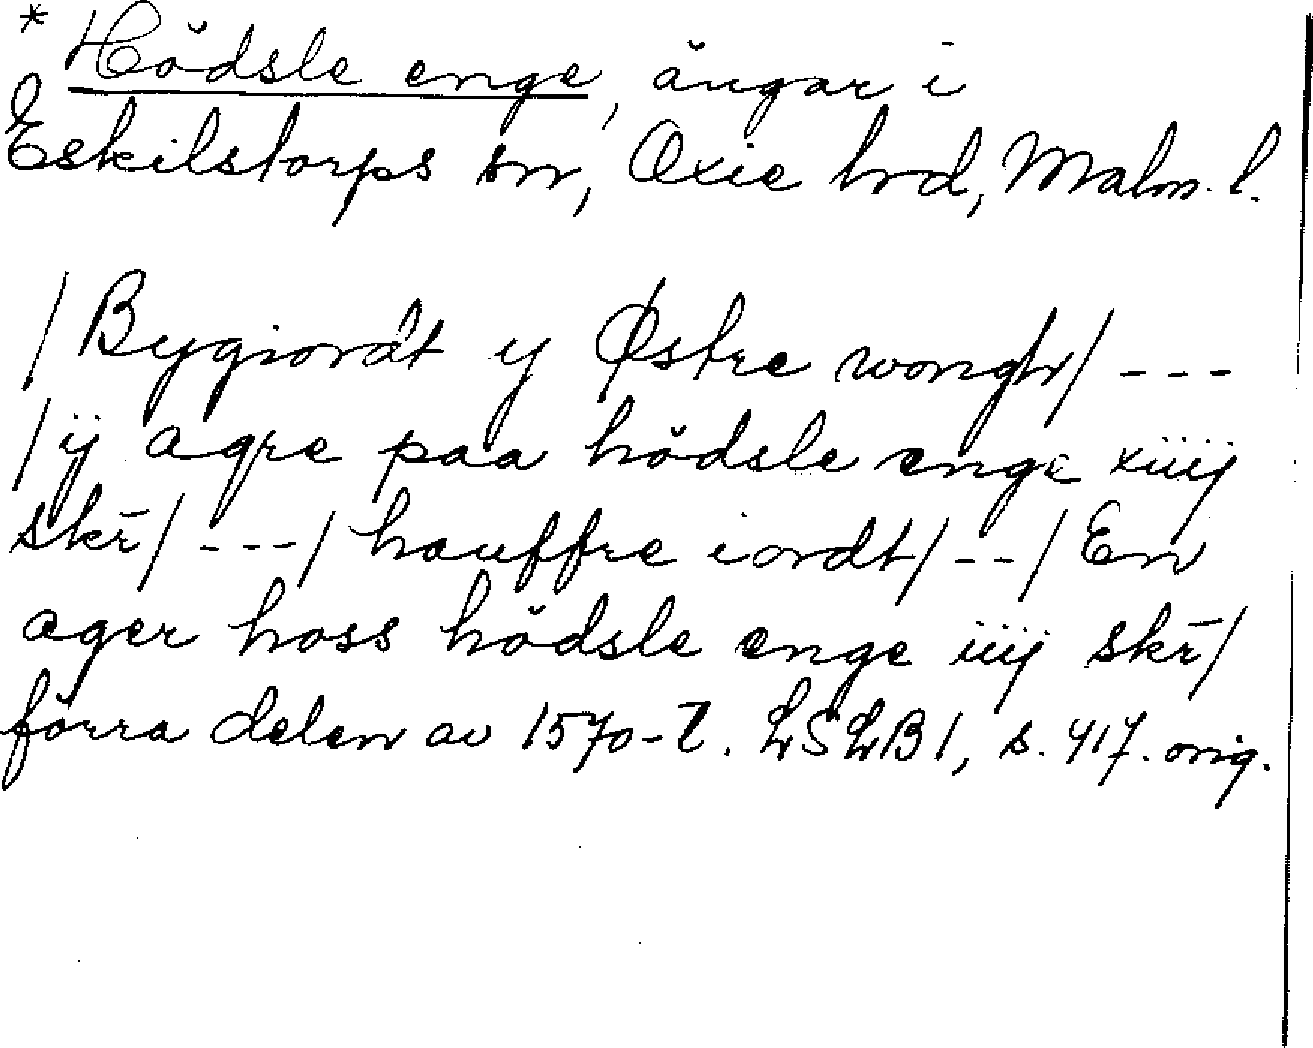 * Hödsle enge, ängar i
Eskilstorps sn, Oxie hrd, Malm. l.
/Bygiordt y Østre wongh/ ---
/ij agre paa hödsle enge xiiij
skr̄/ ---/ hauffre iordt/ --/ En
ager hoss hödsle enge iiij skr̄/
förra delen av 1570-t. LSLB 1, s. 417. orig.